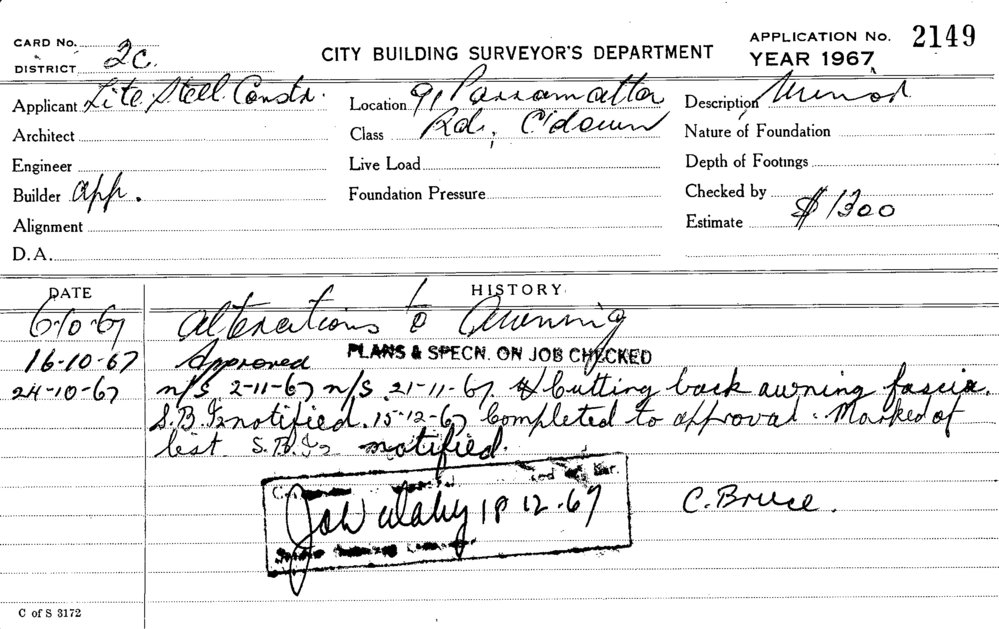 CARD No.
DISTRICT 2c.
CITY BUILDING SURVEYOR'S DEPARTMENT
APPLICATION No. 2149
YEAR 1967
Applicant Lite Steel Constr.
Location 91 Parramatta
Description Minor
Architect
Class Rd., C'down
Nature of Foundation
Engineer
Live Load
Depth of Footings
Builder App.
Foundation Pressure
Checked by
Alignment
Estimate $1300
D.A.
DATE
HISTORY
6-10-67 Alterations to Awning
16-10-67 Approved PLANS & SPECN. ON JOB CHECKED
24-10-67 n/s 2-11-67 n/s 21-11-67. Cutting back awning fascia.
S.B.I. notified. 15-12-67 Completed to approval. Marked of
list. S.B.I. notified.
18 12-67
C. Bruce.
C of S 3172